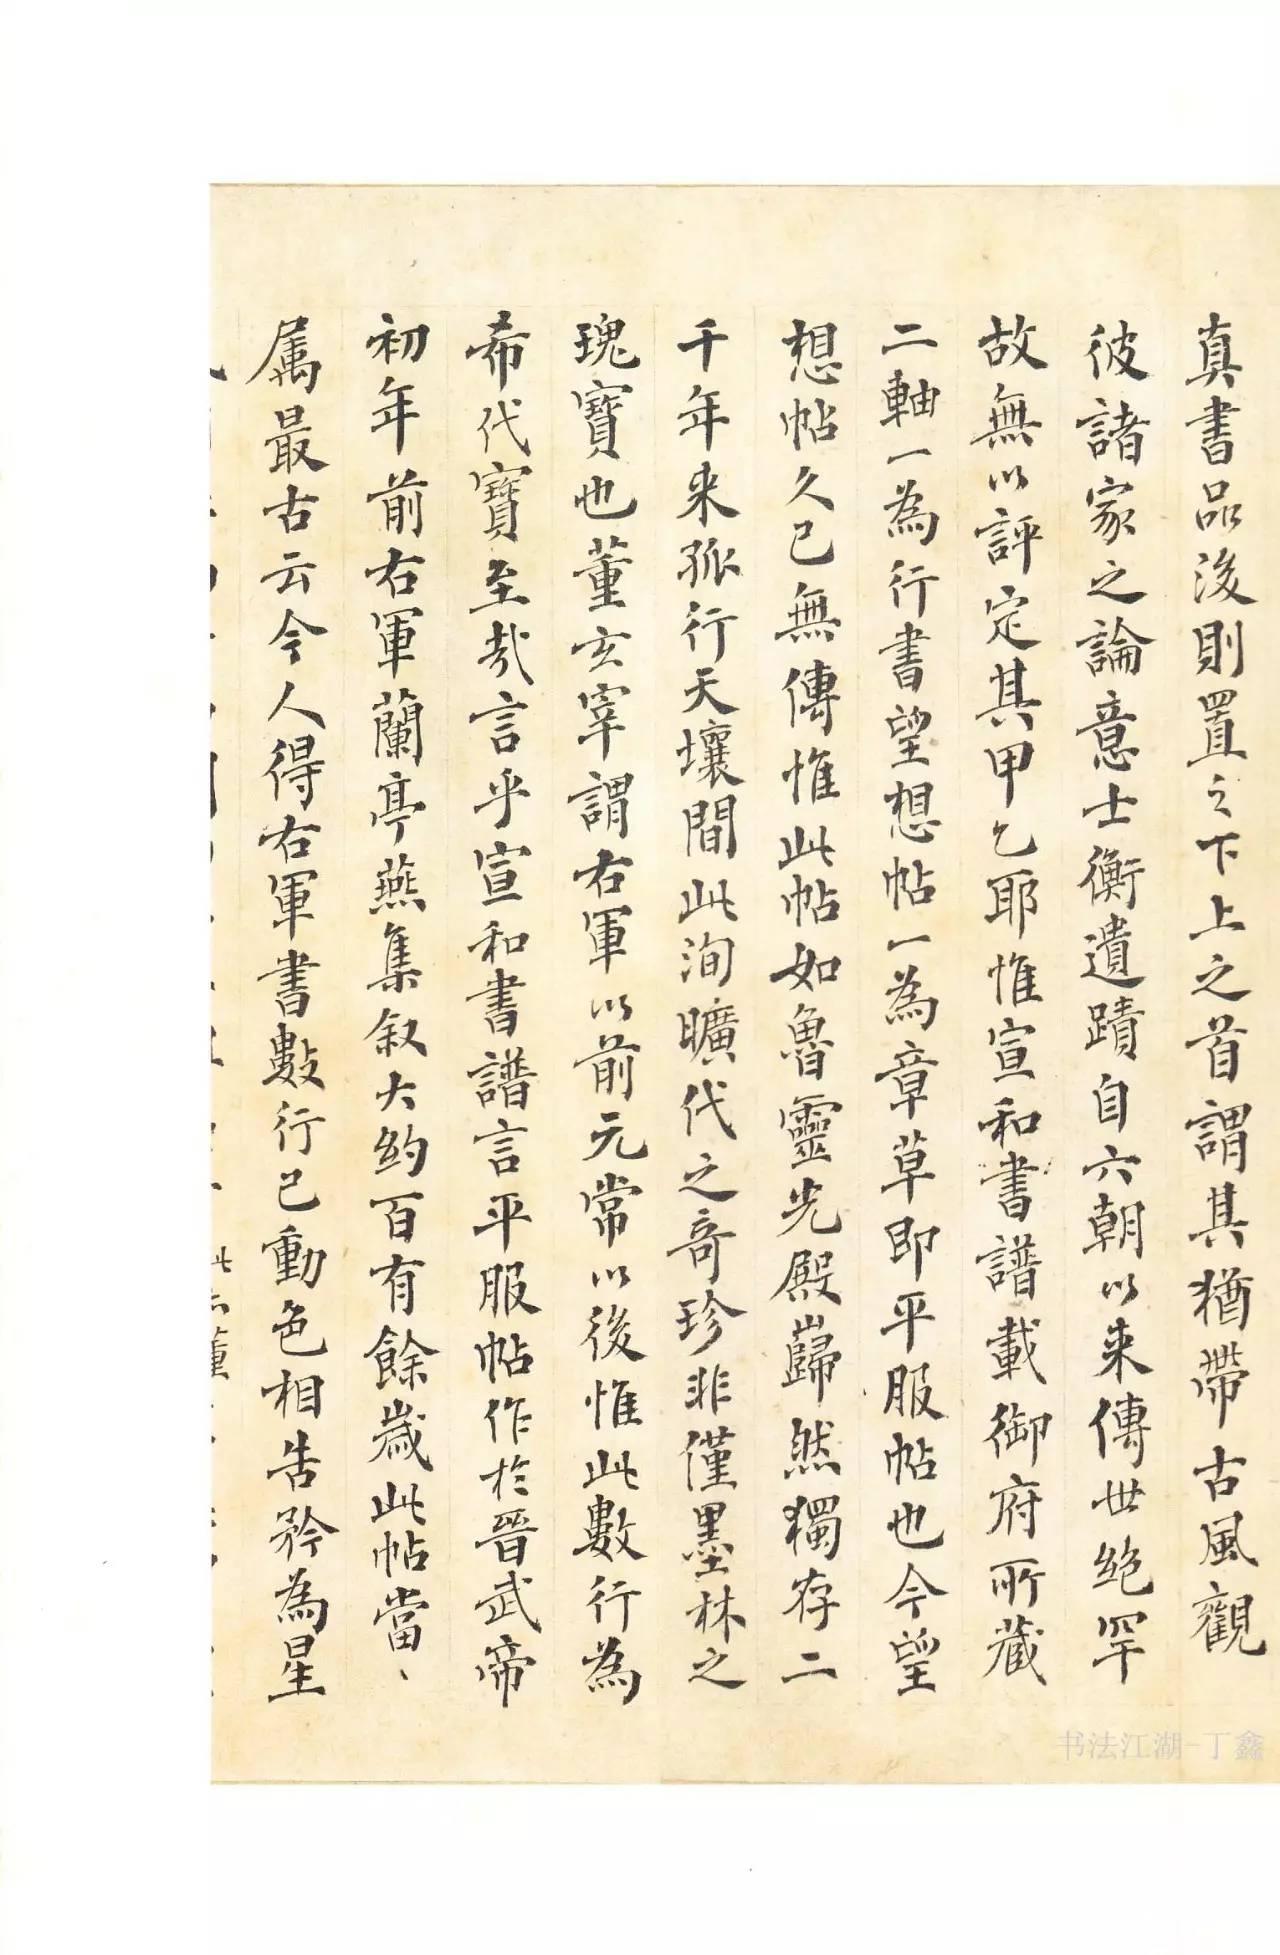 真書品後則置之下上之首謂其猶帶古風觀
彼諸家之論意士衡遺蹟自六朝以来傳世絶罕
故無以評定其甲乙耶惟宣和書譜載御府所藏
二軸一為行書望想帖一為章草即平服帖也今望
想帖久已無傳惟此帖如魯靈光殿巋然獨存二
千年来孤行天壤間此洵曠代之奇珍非僅墨林之
瑰寶也董玄宰謂右軍以前元常以後惟此數行為
希代寶至哉言乎宣和書譜言平服帖作於晉武帝
初年前右軍蘭亭燕集叙大約百有餘歲此帖當、
属最古云今人得右軍書數行已動色相告矜為星
书法江湖-丁鑫